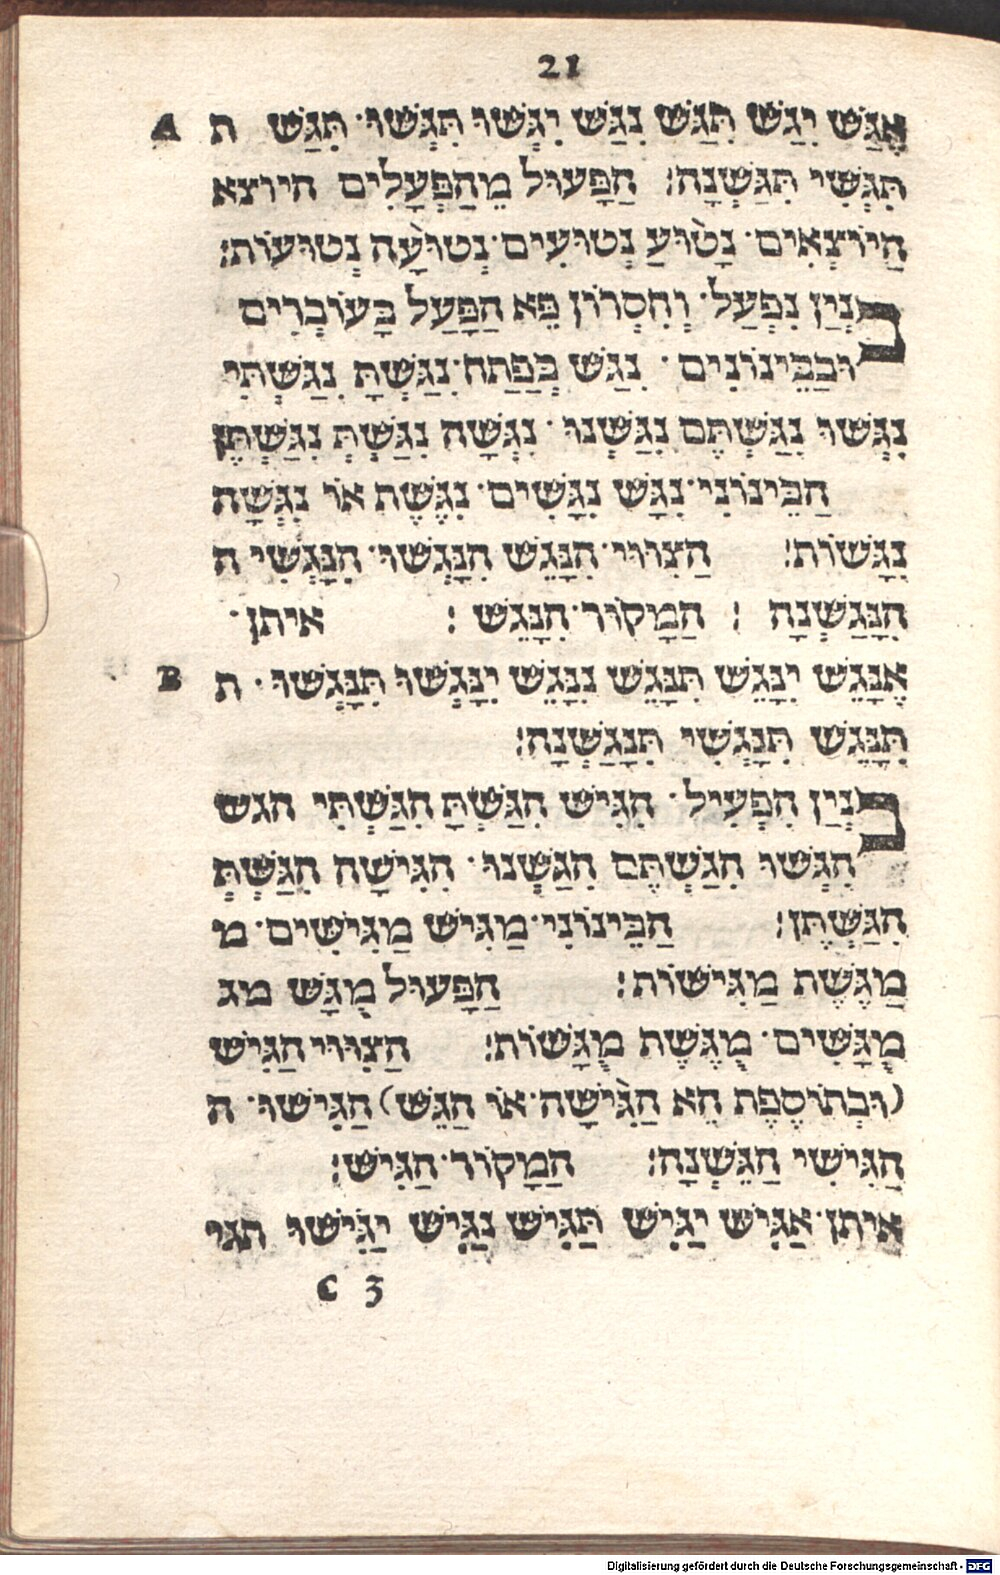 21
A אֶגַּשׁ יִגַּשׁ תִּגַּשׁ נִגַּשׁ יִגְּשׁוּ תִּגְּשׁוּ· תִּגַּשׁ ת
תִּגְּשִׁי תִּגַּשְׁנָה׃ הַפָּעוּל מֵהַפְּעָלִים היוצא
הַיּוֹצְאִים· נָטוּעַ נְטוּעִים· נְטוּעָה נְטוּעוֹת׃
בִּנְיַן נִפְעַל· וְחִסְרוֹן פֵּא הַפָּעַל בָּעוֹבְרִים
וּבַבֵּינוֹנִים· נִגַּשׁ בְּפַתַח· נִגַּשְׁתָּ נִגַּשְׁתִּי
נִגְּשׁוּ נִגַּשְׁתֶּם נִגַּשְׁנוּ· נִגְּשָׁה נִגַּשְׁתְּ נִגַּשְׁתֶּן
הַבֵּינוֹנִי· נִגָּשׁ נִגָּשִׁים· נִגֶּשֶׁת אוֹ נִגְּשָׁה
נִגָּשׁוֹת׃ הַצִּוּוּי· הִנָּגֵשׁ הִנָּגְשׁוּ· הִנָּגְשִׁי ה
הִנָּגַשְׁנָה ׃ הַמָּקוֹר· הִנָּגֵשׁ ׃ איתן·
B אֶנָּגֵשׁ יִנָּגֵשׁ תִּנָּגֵשׁ נִנָּגֵשׁ יִנָּגְשׁוּ תִּנָּגְשׁוּ· ת
תִּנָּגֵשׁ תִּנָּגְשִׁי תִּנָּגַשְׁנָה׃
בִּנְיַן הִפְעִיל· הִגִּישׁ הִגַּשְׁתָּ הִגַּשְׁתִּי הגש
הִגְּשׁוּ הִגַּשְׁתֶּם הִגַּשְׁנוּ· הִגִּישָׁה הִגַּשְׁתְּ
הִגַּשְׁתֶּן׃ הַבֵּינוֹנִי· מַגִּישׁ מַגִּישִׁים· מ
מַגֶּשֶׁת מַגִּישׁוֹת׃ הַפָּעוּל מֻגָּשׁ מג
מֻגָּשִׁים· מֻגֶּשֶׁת מֻגָּשׁוֹת׃ הַצִּוּוּי הַגִּישׁ
(וּבְתוֹסֶפֶת הֵא הַגִּישָׁה· אוֹ הַגֵּשׁ) הַגִּישׁוּ· ה
הַגִּישִׁי הַגֵּשְׁנָה׃ הַמָּקוֹר· הַגִּישׁ׃
אֵיתָן· אַגִּישׁ יַגִּישׁ תַּגִּישׁ נַגִּישׁ יַגִּישׁוּ תגי
C 3
Digitalisierung gefördert durch die Deutsche Forschungsgemeinschaft - DFG